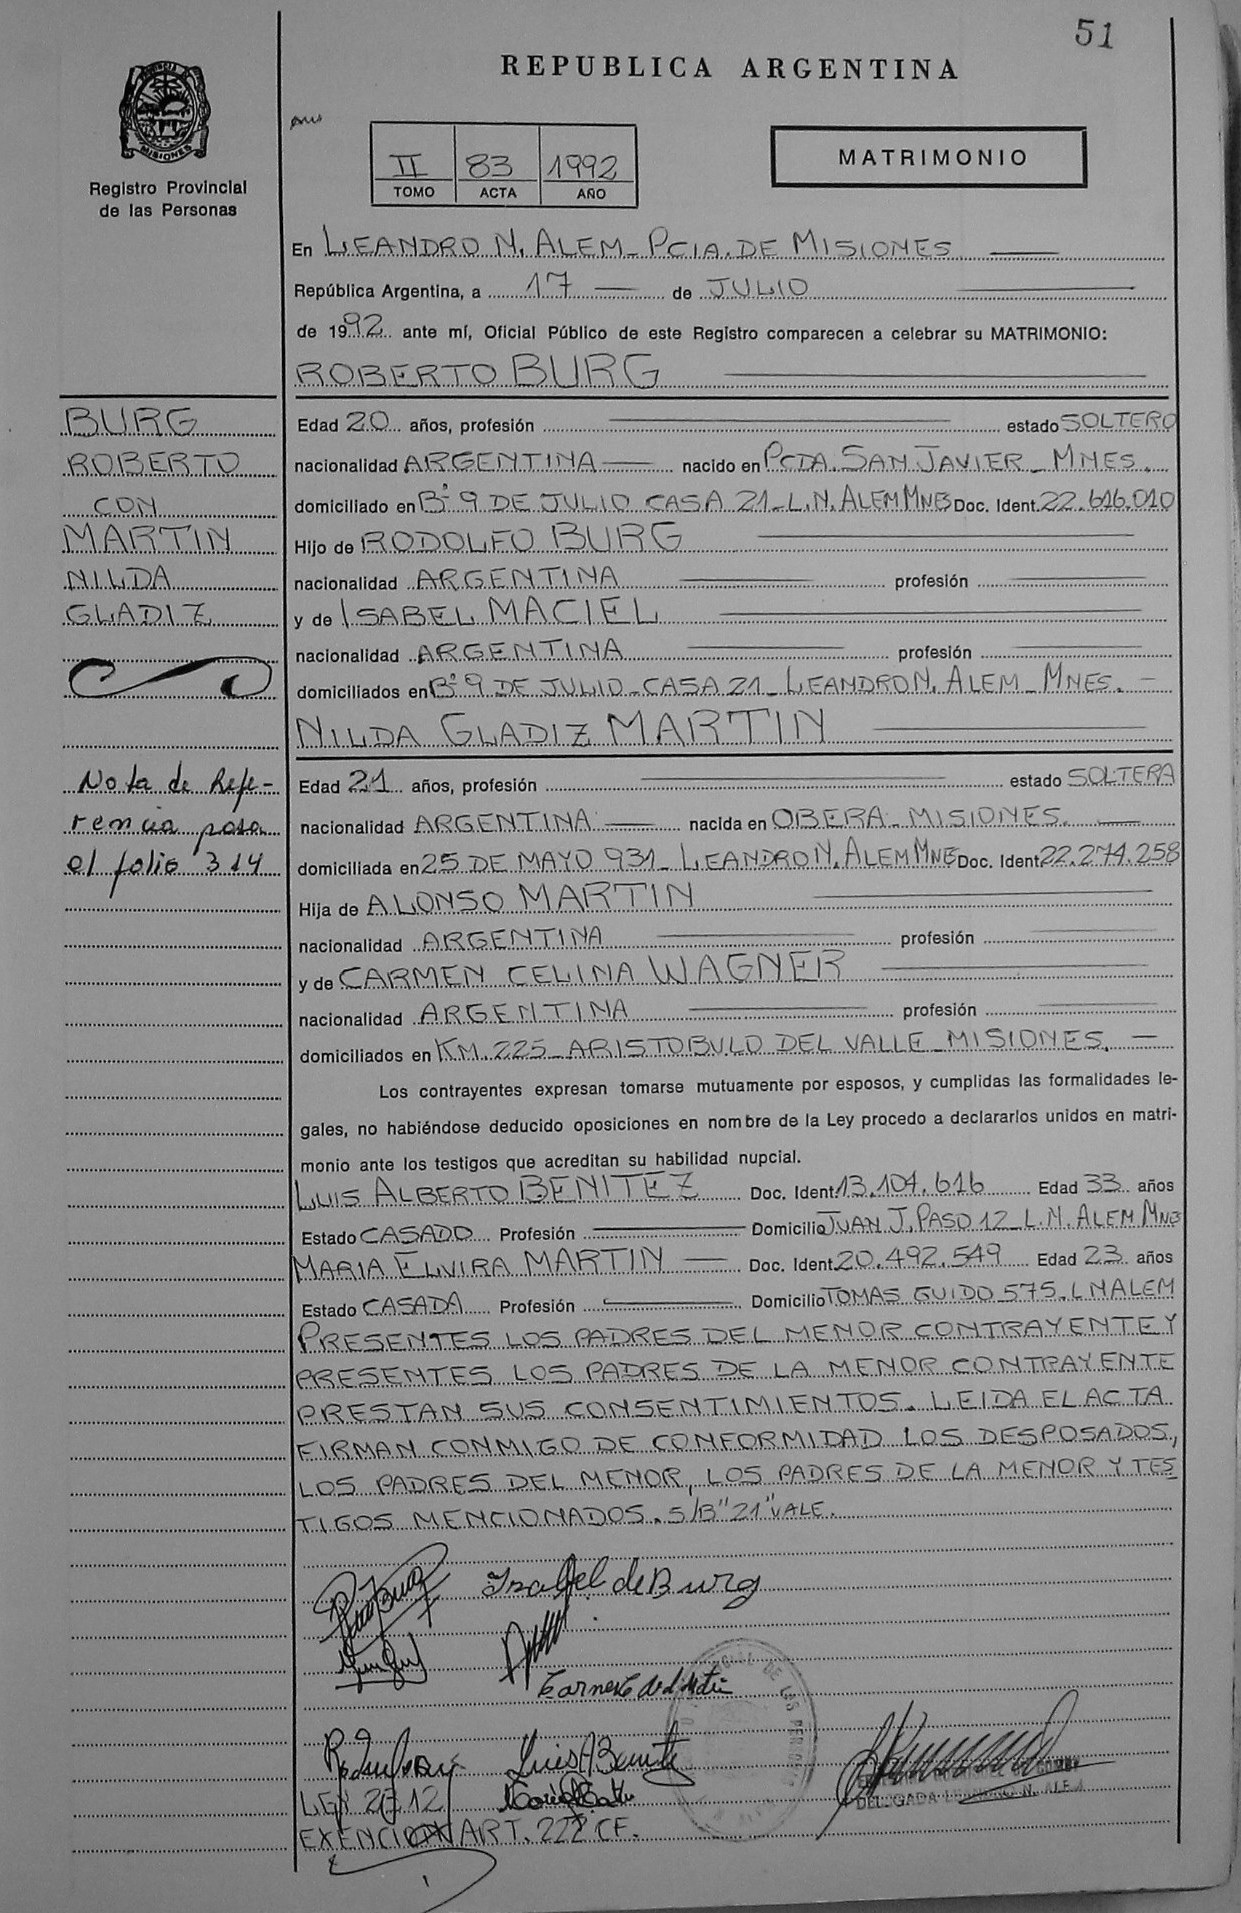 51
REPUBLICA ARGENTINA
PROVINCIA DE MISIONES
Registro Provincial
de las Personas
II 83 1992
TOMO ACTA AÑO
MATRIMONIO
En LEANDRO N. ALEM_ PCIA. DE MISIONES
República Argentina, a 17 de JULIO
de 1992 ante mí, Oficial Público de este Registro comparecen a celebrar su MATRIMONIO:
ROBERTO BURG
BURG
ROBERTO
CON
MARTIN
NILDA
GLADIZ
Nota de Refe-
rencia pasa
el folio 314
Edad 20 años, profesión estado SOLTERO
nacionalidad ARGENTINA nacido en PCDA. SAN JAVIER_ MNES.
domiciliado en Bº 9 DE JULIO CASA 21_ L.N. ALEM MNES Doc. Ident. 22.616.010
Hijo de RODOLFO BURG
nacionalidad ARGENTINA profesión
y de ISABEL MACIEL
nacionalidad ARGENTINA profesión
domiciliados en Bº 9 DE JULIO_ CASA 21_ LEANDRO N. ALEM_ MNES.
NILDA GLADIZ MARTIN
Edad 21 años, profesión estado SOLTERA
nacionalidad ARGENTINA nacida en OBERA_ MISIONES.
domiciliada en 25 DE MAYO 931_ LEANDRO N. ALEM MNES Doc. Ident. 22.274.258
Hija de ALONSO MARTIN
nacionalidad ARGENTINA profesión
y de CARMEN CELINA WAGNER
nacionalidad ARGENTINA profesión
domiciliados en KM. 225_ ARISTOBULO DEL VALLE_ MISIONES.
Los contrayentes expresan tomarse mutuamente por esposos, y cumplidas las formalidades le-
gales, no habiéndose deducido oposiciones en nombre de la Ley procedo a declararlos unidos en matri-
monio ante los testigos que acreditan su habilidad nupcial.
LUIS ALBERTO BENITEZ Doc. Ident. 13.104.616 Edad 33 años
Estado CASADO Profesión Domicilio JUAN J. PASO 12_ L.N. ALEM MNES
MARIA ELVIRA MARTIN Doc. Ident. 20.492.549 Edad 23 años
Estado CASADA Profesión Domicilio TOMAS GUIDO 575. L N ALEM
PRESENTES LOS PADRES DEL MENOR CONTRAYENTE Y
PRESENTES LOS PADRES DE LA MENOR CONTRAYENTE
PRESTAN SUS CONSENTIMIENTOS. LEIDA EL ACTA
FIRMAN CONMIGO DE CONFORMIDAD LOS DESPOSADOS,
LOS PADRES DEL MENOR, LOS PADRES DE LA MENOR Y TES
TIGOS MENCIONADOS. S/B "21" VALE.
Isabel de Burg
Luis A Benitez
LEY 2712
DELEGADA LEANDRO N. ALEM
EXENCION ART. 222 CF.